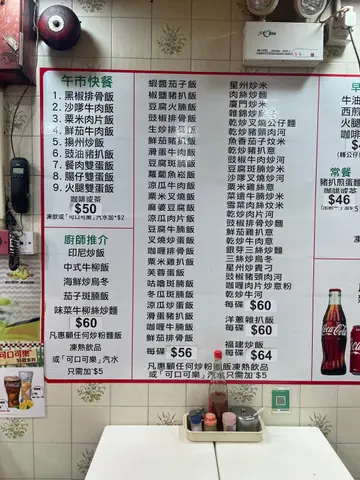 午市快餐
1. 黑椒排骨飯
2. 沙嗲牛肉飯
3. 粟米肉片飯
4. 鮮茄牛肉飯
5. 揚州炒飯
6. 豉油豬扒飯
7. 餐肉雙蛋飯
8. 腸仔雙蛋飯
9. 火腿雙蛋飯
咖啡或茶
$50
凍飲或「可口可樂」汽水加*$2
廚師推介
印尼炒飯
中式牛柳飯
海鮮炒烏冬
茄子斑腩飯
味菜牛柳絲炒麵
$60
凡惠顧任何炒粉麵飯
凍熱飲品
或「可口可樂」汽水
只需加*$5
蝦醬茄子飯
椒鹽豬扒飯
豆腐火腩飯
豉椒排骨飯
生炒排骨飯
鮮茄豬扒飯
鮮茄雞扒飯
豆腐斑腩飯
蘿蔔魚崧飯
涼瓜牛肉飯
粟米叉燒飯
麻婆豆腐飯
涼瓜肉片飯
豆腐牛腩飯
叉燒炒蛋飯
咖喱雞扒飯
粟米雞扒飯
芙蓉蛋飯
咕嚕斑腩飯
涼瓜斑腩飯
冬瓜斑腩飯
滑蛋豬扒飯
咖喱牛腩飯
鮮茄排骨飯
每碟 $56
凡惠顧任何炒粉麵飯凍熱飲品
或「可口可樂」汽水只需加*$5
星州炒米
肉絲炒麵
廈門炒米
乾炒叉燒公仔麵
乾炒豬頸肉河
魚香茄子炆米
乾炒豬扒意
豉椒牛肉炒河
豆腐斑腩炒米
沙嗲叉燒炒河
粟米雞絲意
菜遠牛腩炒米
雪菜肉絲炆米
乾炒肉片河
豉椒排骨炒河
鮮茄雞扒意
乾炒牛肉意
銀芽三絲炒麵
三絲炒烏冬
星州炒貴刁
豉椒豬頸肉河
咖喱肉片炒意粉
乾炒牛河
每碟 $60
洋蔥雞扒飯
每碟 $60
福建炒飯
每碟 $64
常餐
$46
Coca-Cola